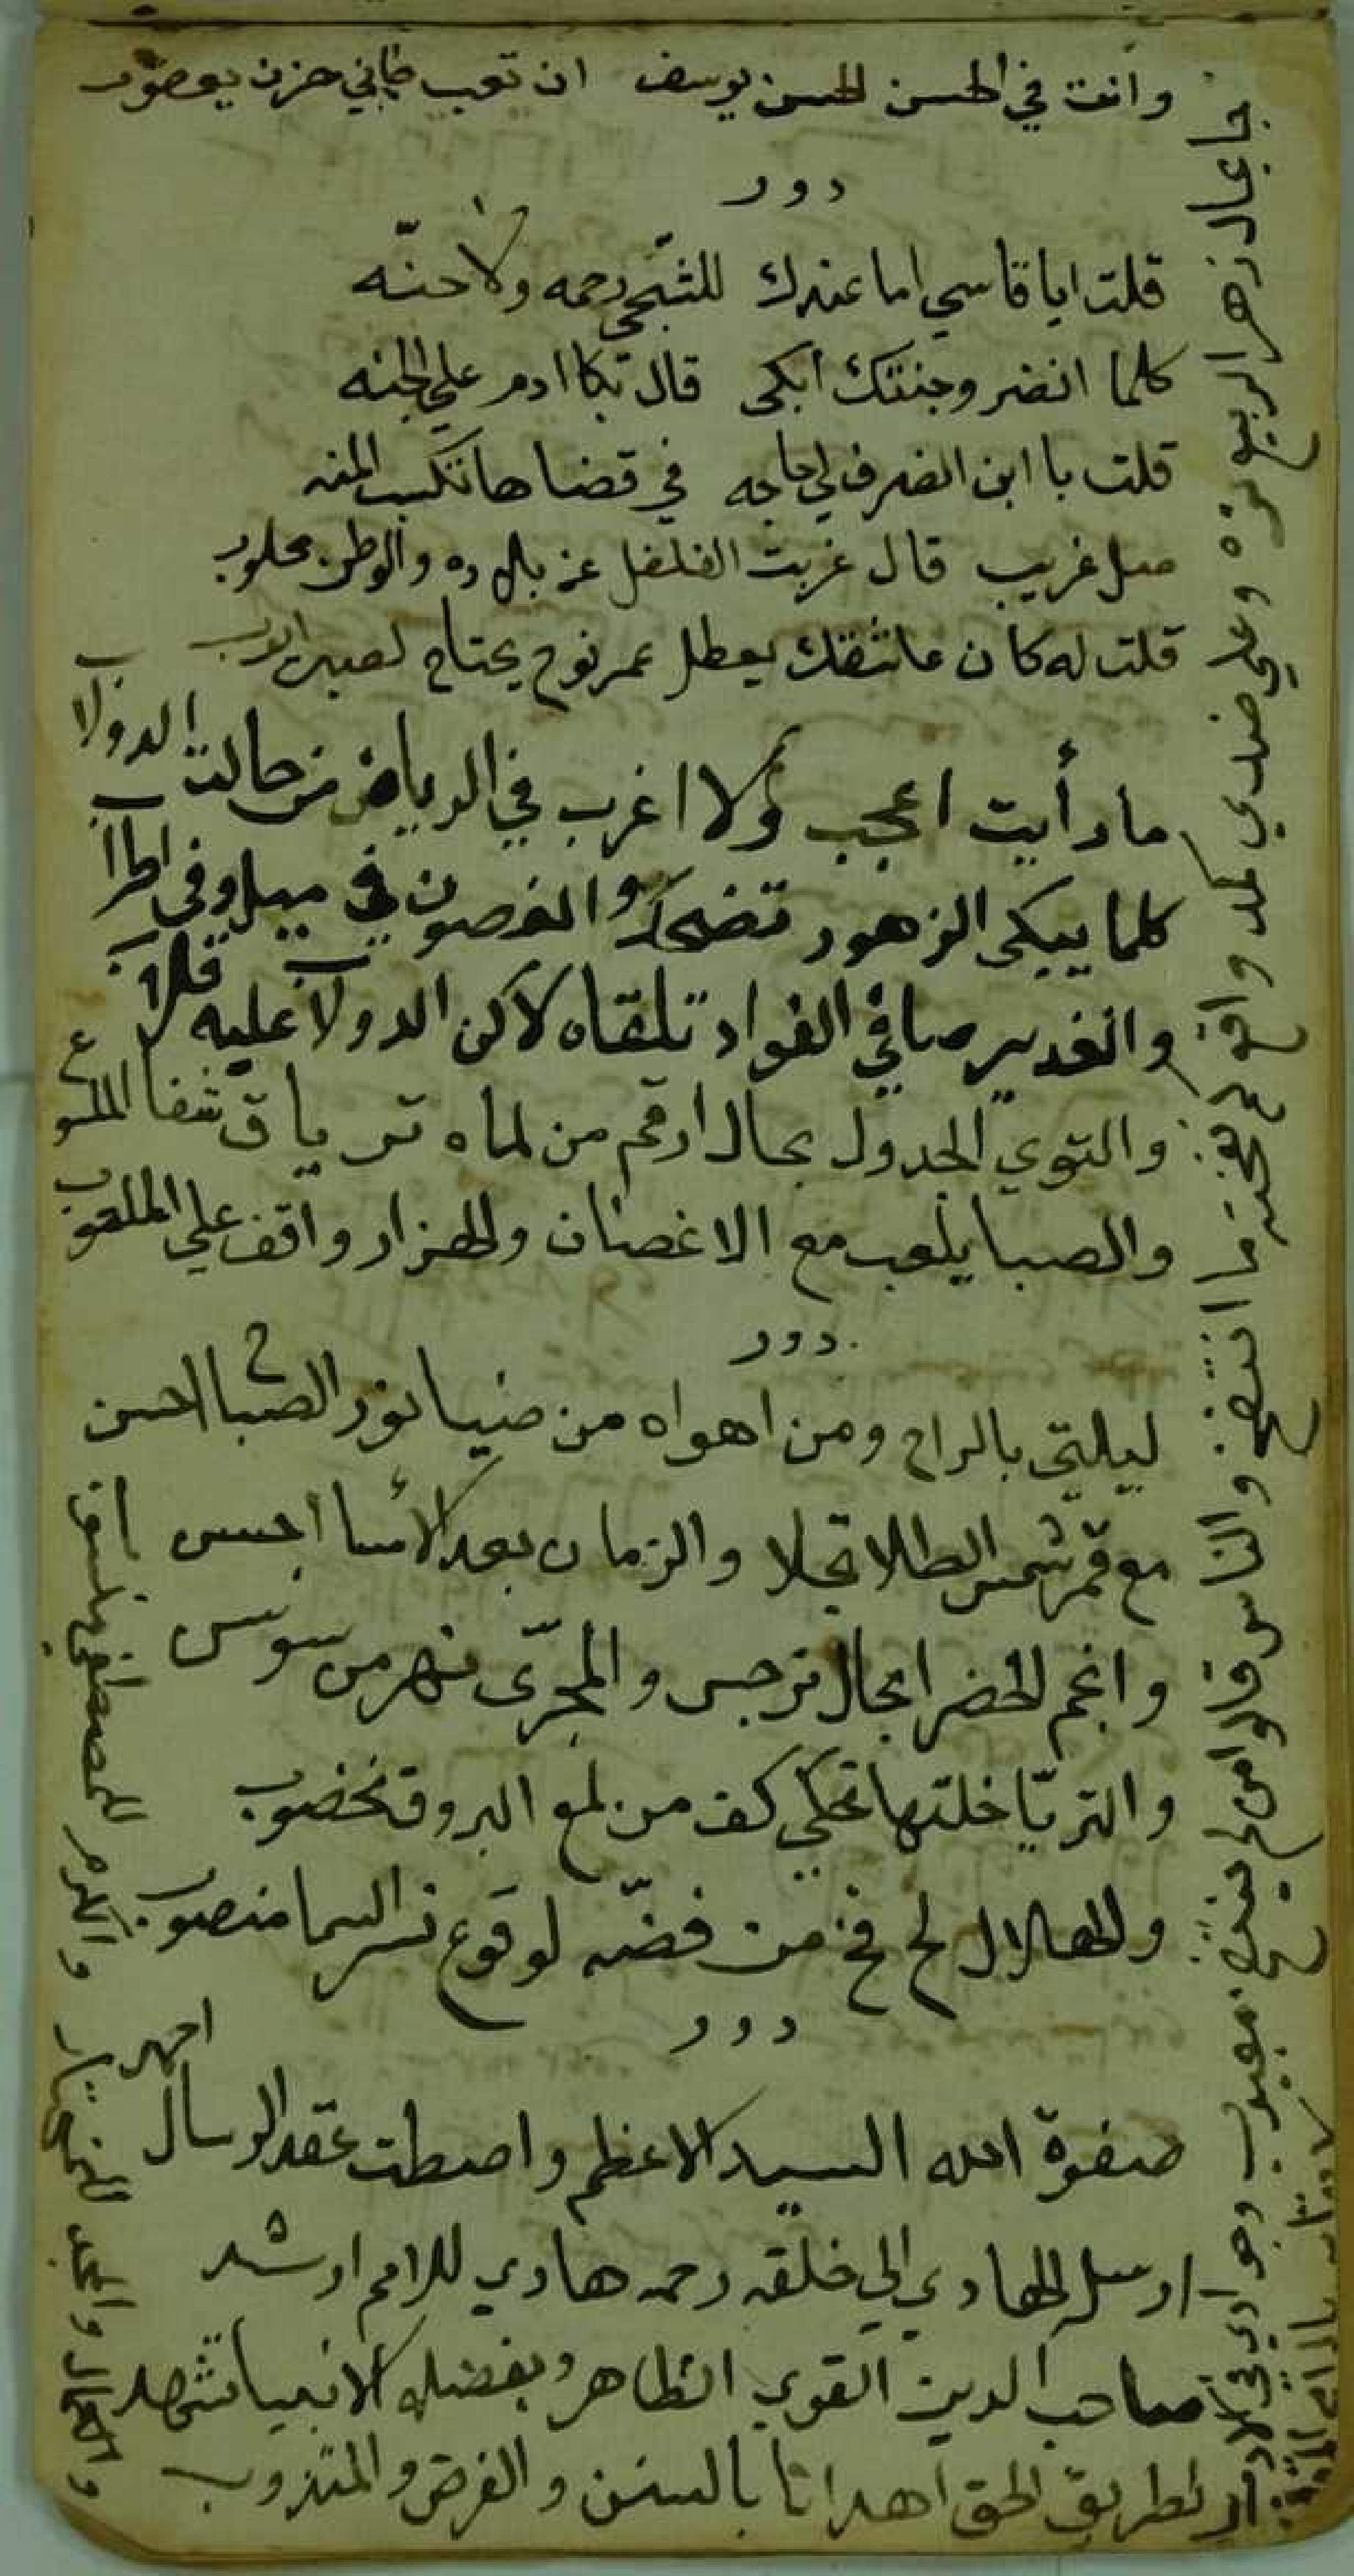 وانت في الحسن الحسن يوسف ان تغيب فاني حزن يعقوب
دور
قلت ايا قاسي اما عندك للشجي رحمه ولا حنّه
كلما انضر وجنتك ابكى قال بكا ادم علي الجنه
قلت يا ابن الضرف لي حاجه في قضا هاتكسب المنه
صل غريب قال غربت الفلفل عن بلاده والوطن محلوب
قلت له كان عاشقك يعطل عمر نوح يحتاج لصبر ايوب
ما رأيت اعجب ولا اغرب في الرياض من حالت الدولاب
كلما يبكى الزهور تضحك والغصون في ميل وفي اطراب
والغدير صافي الفواد تلقاه لاكن الدولاب عليه قلاب
والتوي الجدول بحال ارقم من لماه ترياق شفا الملسوع
والصبا يلعب مع الاغصان والهزار واقف علي الملعوب
دور
ليلتي بالراح ومن اهواه من ضيا نور الصباح احسن
مع قمر شمس الطلا تجلا والزمان بعد الأسا احسن
وانجم الخضرا بحال نرجس والمجرّى نهر من سوسن
والثريّا خلتها تحكي كف من لمع البروق مخضوب
والهلال لح فخ من فضّه لوقوع نسر السما منصوب
دور
صفوة الله السيد الاعظم واصطت عقد الرسال احمد
ارسل الهادي الي خلقه رحمه هادي للامم ارشد
صاحب الدين القوي الظاهر وبفضله الانبيا تشهد
لطريق الحق اهدانا بالسنن والفرض والمندوب
جا بحال زهر الربيع نزه وعلي ضدي
ما انتفخ والناس قالوا من